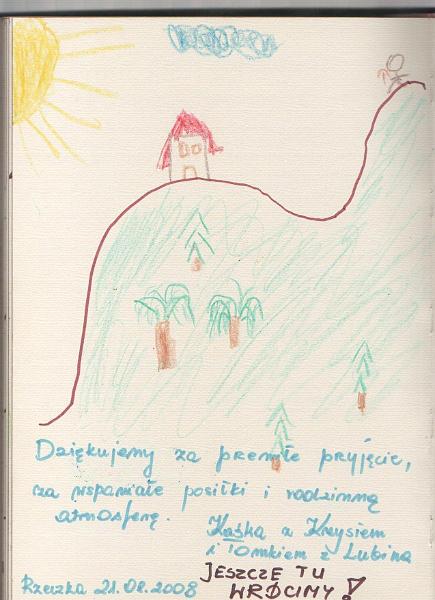 Dziękujemy za premiłe pryjęcie,
za wspaniałe posiłki i rodzinną
atmosferę.
Kaśka z Krzysiem
i Tomkiem z Lubina
JESZCZE TU
WRÓCIMY!
Rzeczka 21.08.2008